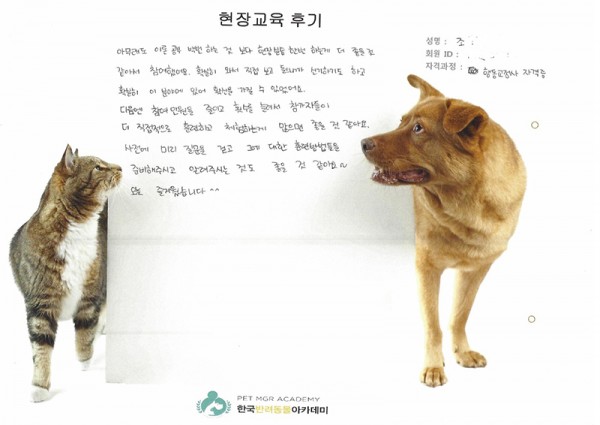 현장교육 후기
성명 : 조
회원 ID :
자격과정 : 행동교정사 자격증
아무래도 이론 공부 백번 하는 것 보다 현장실습 한번 하는게 더 좋을 것
같아서 참여했어요. 확실히 와서 직접 보고 들으니 신기하기도 하고
확실히 이 분야에 있어 확신을 가질 수 있었어요.
다음엔 참여 인원을 줄이고 횟수를 늘려서 참가자들이
더 직접적으로 훈련하고 체험하는게 많으면 좋을 것 같아요.
사전에 미리 질문을 걷고 그에 대한 훈련방법들을
준비해주시고 알려주시는 것도 좋을 것 같아요~
오늘 즐거웠습니다 ^^
PET MGR ACADEMY
한국반려동물아카데미